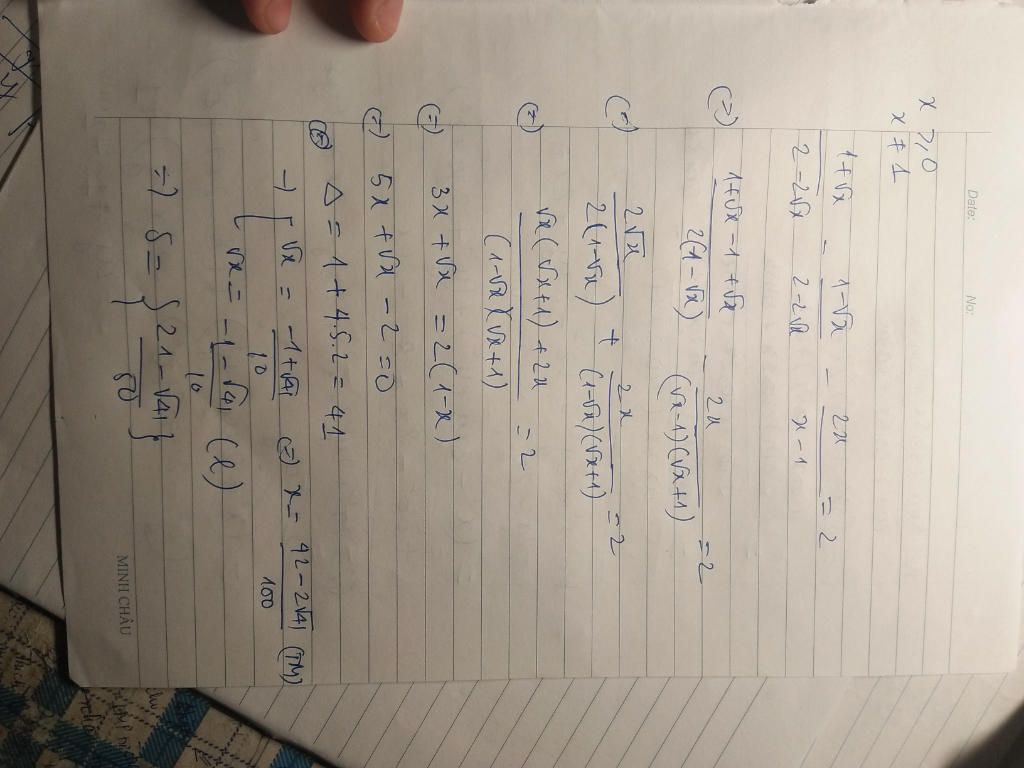 Date:
No:
x ⩾ 0
x ≠ 1
(1+√x)/(2-2√x) - (1-√x)/(2-2√x) - 2x/(x-1) = 2
(=) (1+√x-1+√x)/(2(1-√x)) - 2x/((√x-1)(√x+1)) = 2
(=) 2√x/(2(1-√x)) + 2x/((1-√x)(√x+1)) = 2
(=) (√x(√x+1)+2x)/((1-√x)(√x+1)) = 2
(=) 3x+√x = 2(1-x)
(=) 5x+√x-2=0
Δ = 1+4.5.2 = 41
→ [ √x = (-1+√41)/10 (=) x = (42-2√41)/100 (TM)
√x = (-1-√41)/10 (l)
=) S = { (21-√41)/50 }
MINH CHÂU